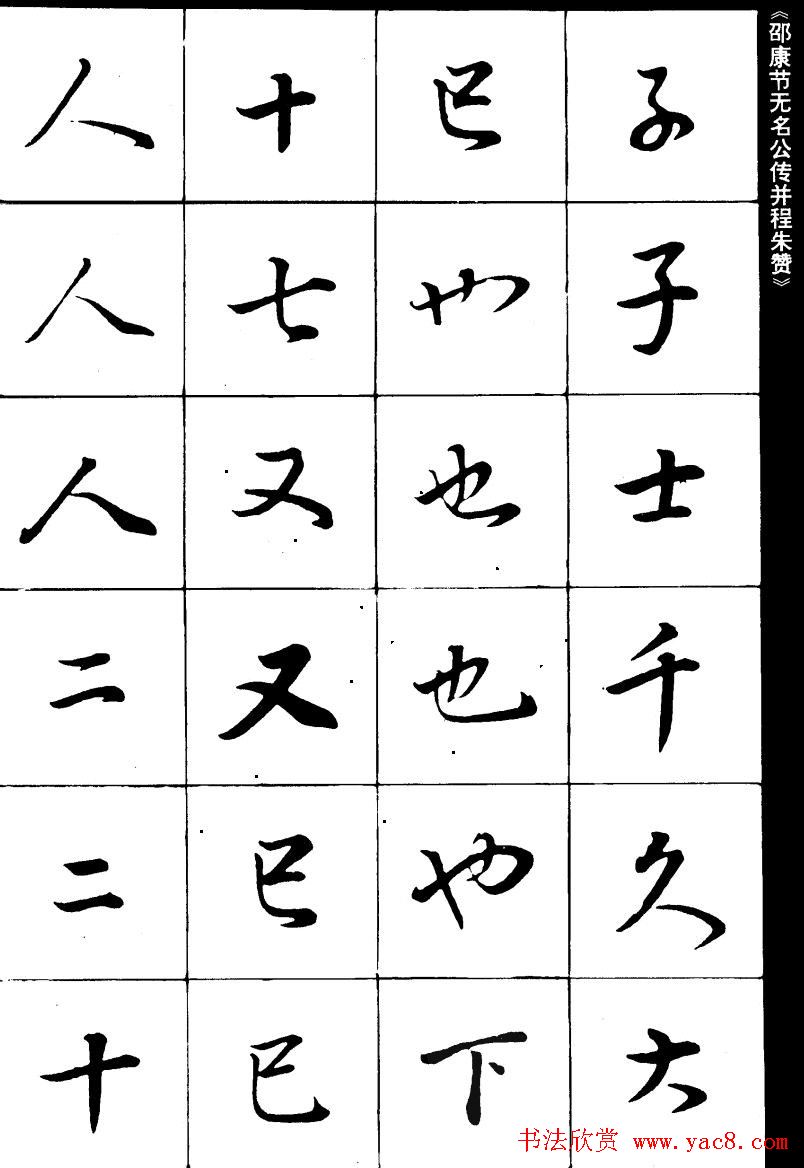 《邵康节无名公传并程朱赞》
人人人二二十
十七又又已已
已也也也也下
子子士千久大
书法欣赏 www.yac8.com